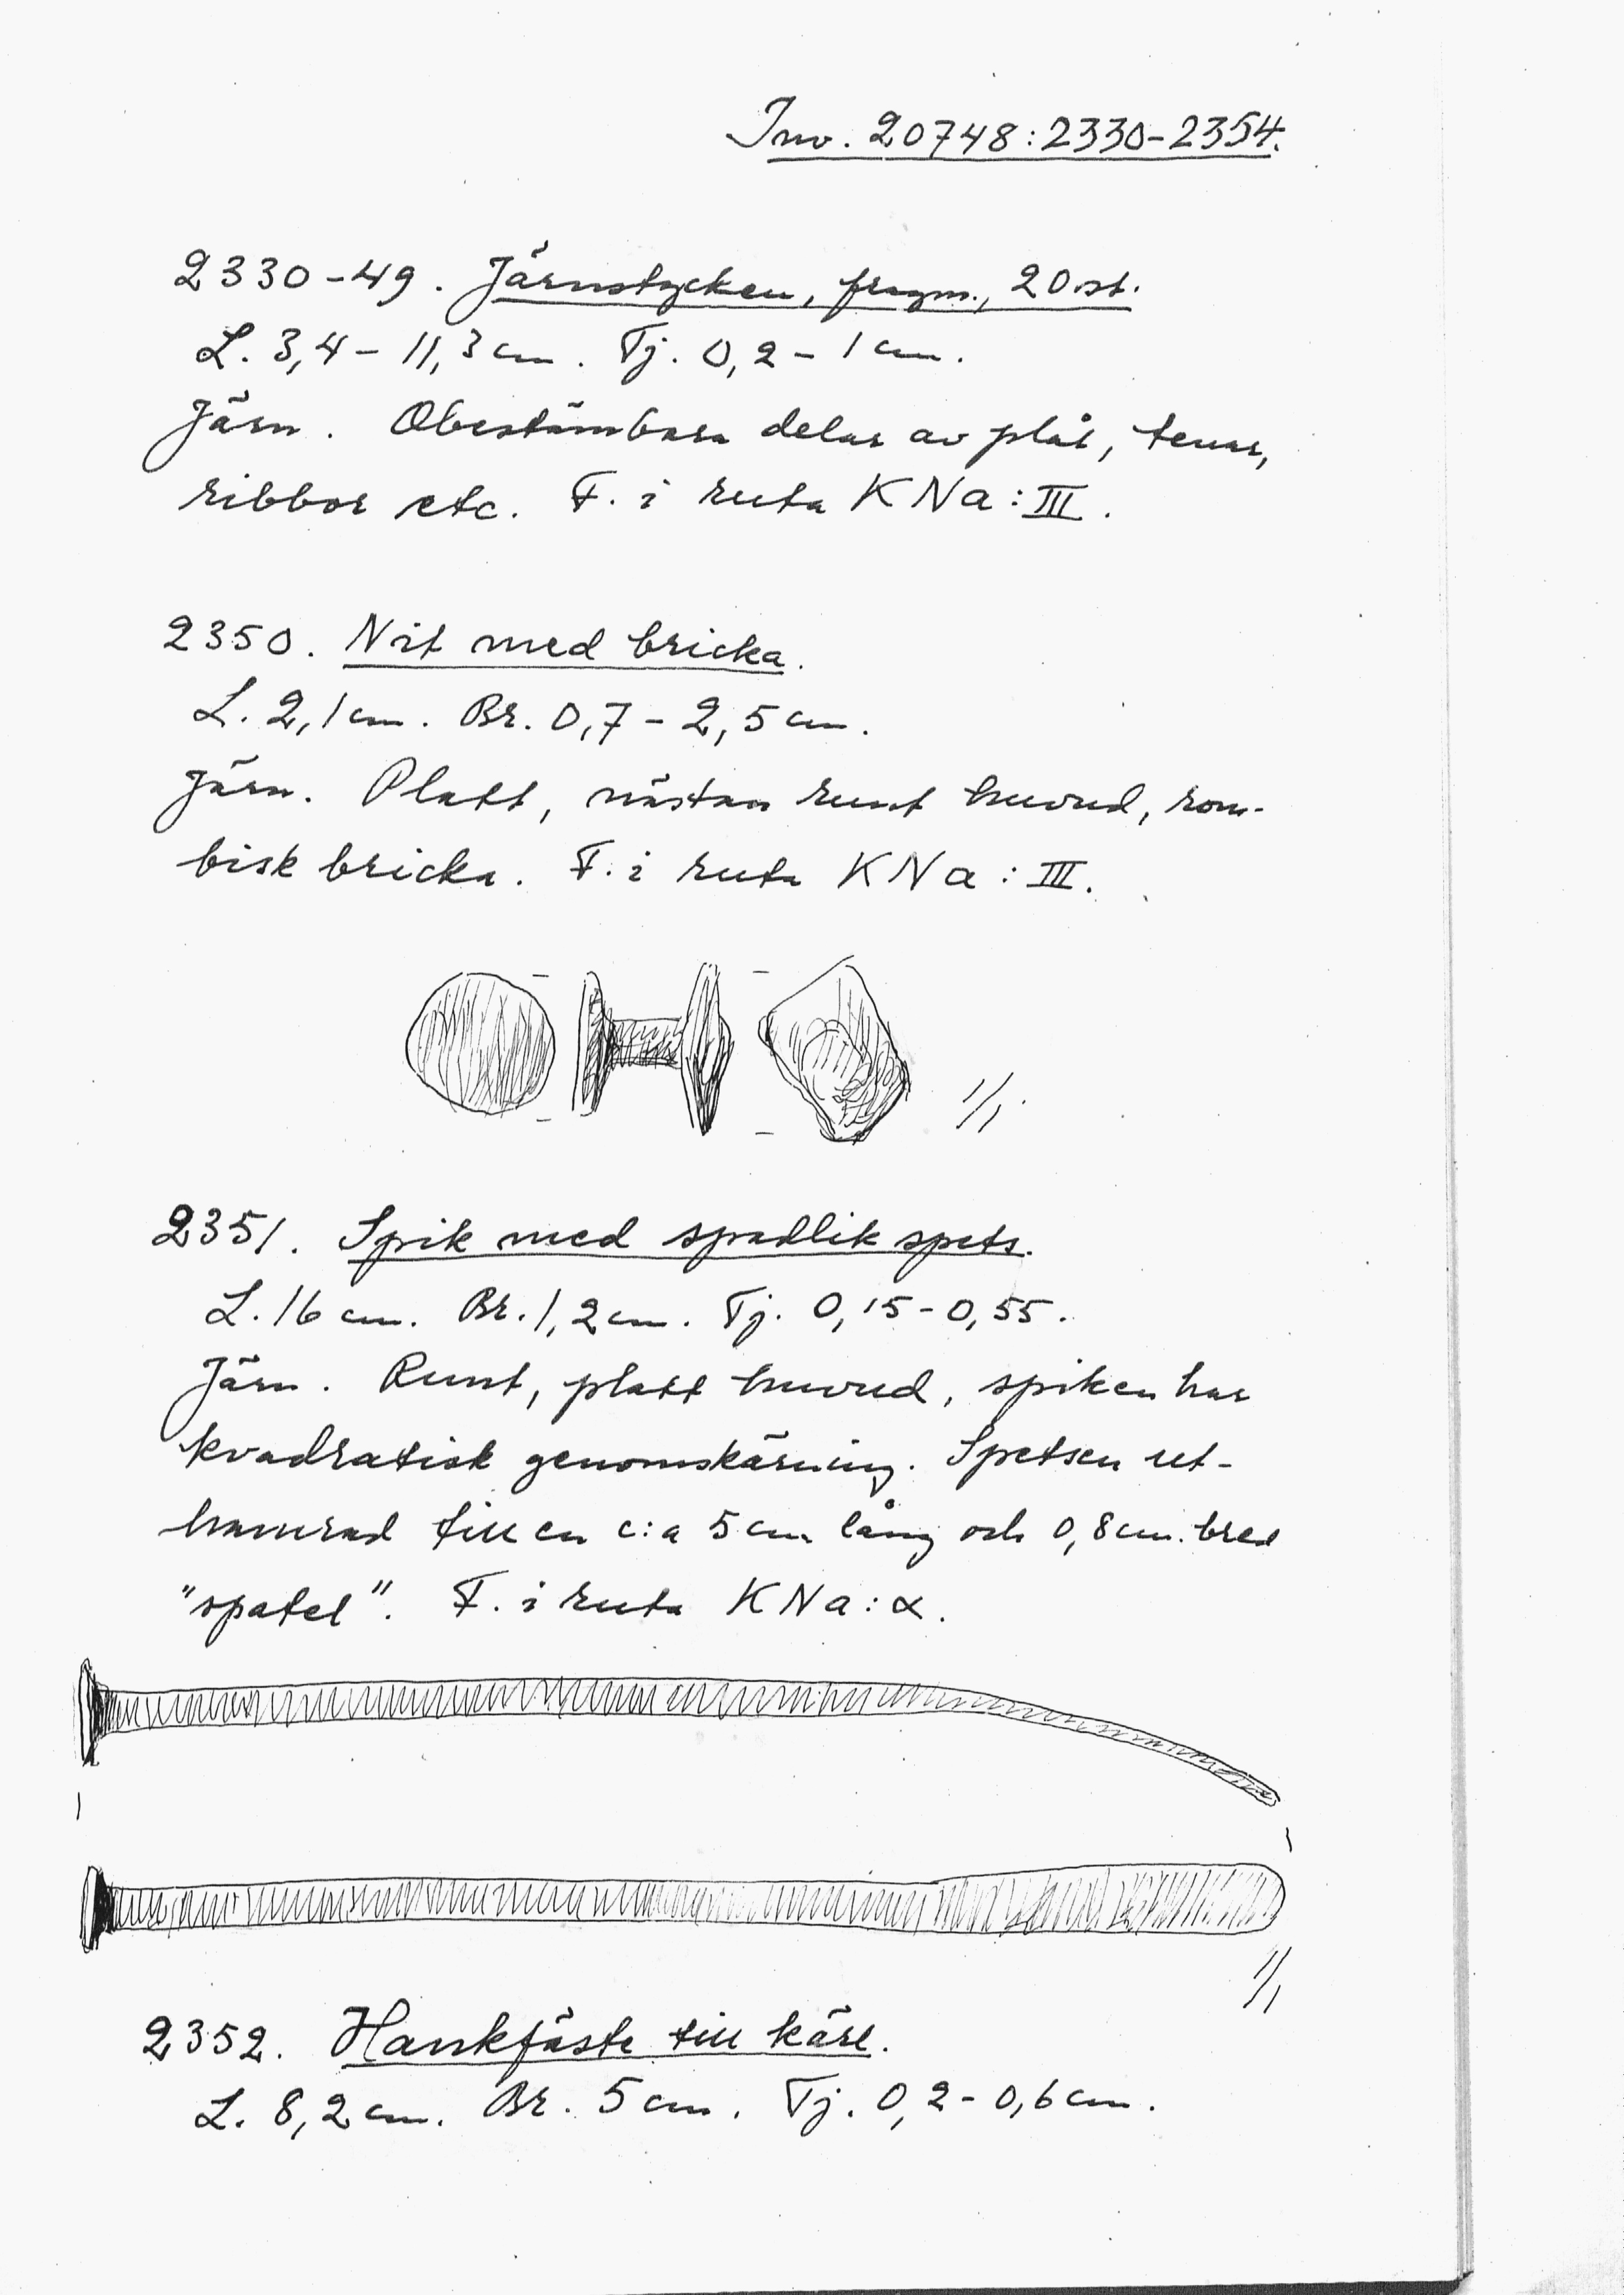 Inv. 20748:2330-2354.
2330-49. Järnstycken, fragm., 20 st.
L. 3,4 - 11,3 cm. Tj. 0,2 - 1 cm.
Järn. Obestämbara delar av plåt, tenar,
ribbor etc. F. i ruta KNa:III.
2350. Nit med bricka.
L. 2,1 cm. Br. 0,7 - 2,5 cm.
Järn. Platt, nästan runt huvud, rom-
bisk bricka. F. i ruta KNa:III.
1/1.
2351. Spik med spadlik spets.
L. 16 cm. Br. 1,2 cm. Tj. 0,15-0,55.
Järn. Runt, platt huvud, spiken har
kvadratisk genomskärning. Spetsen ut-
hamrad till en c:a 5 cm lång och 0,8 cm. bred
"spatel". F. i ruta KNa:α.
1/1
2352. Hankfäste till kärl.
L. 8,2 cm. Br. 5 cm. Tj. 0,2 - 0,6 cm.